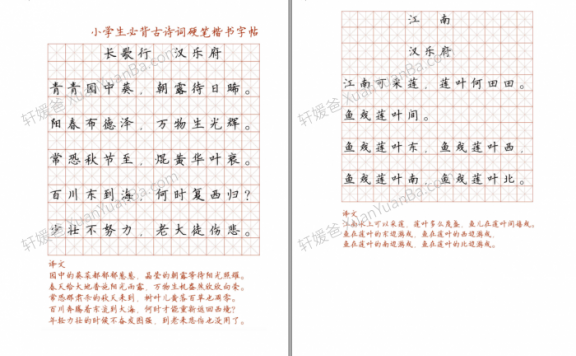 小学生必背古诗词硬笔楷书字帖
长歌行 汉乐府
青青园中葵，朝露待日晞。
阳春布德泽，万物生光辉。
常恐秋节至，焜黄华叶衰。
百川东到海，何时复西归？
少壮不努力，老大徒伤悲。
译文
园中的葵菜都郁郁葱葱，晶莹的朝露等待阳光照耀。
春天给大地普施阳光雨露，万物生机盎然欣欣向荣。
常恐那肃杀的秋天来到，树叶儿黄落百草也凋零。
百川奔腾着东流到大海，何时才能重新返回西境？
年轻力壮的时候不奋发图强，到老来悲伤也没用了。
江 南
汉乐府
江南可采莲，莲叶何田田。
鱼戏莲叶间。
鱼戏莲叶东，鱼戏莲叶西，
鱼戏莲叶南，鱼戏莲叶北。
译文
江南水上可以采莲，莲叶多么茂盛，鱼儿在莲叶间嬉戏。
鱼在莲叶的东边游戏，鱼在莲叶的西边游戏，
鱼在莲叶的南边游戏，鱼在莲叶的北边游戏。
轩媛爸 XuanYuanBa.com
轩媛爸 XuanYuanBa.com
轩媛爸 XuanYuanBa.com
轩媛爸 XuanYuanBa.com